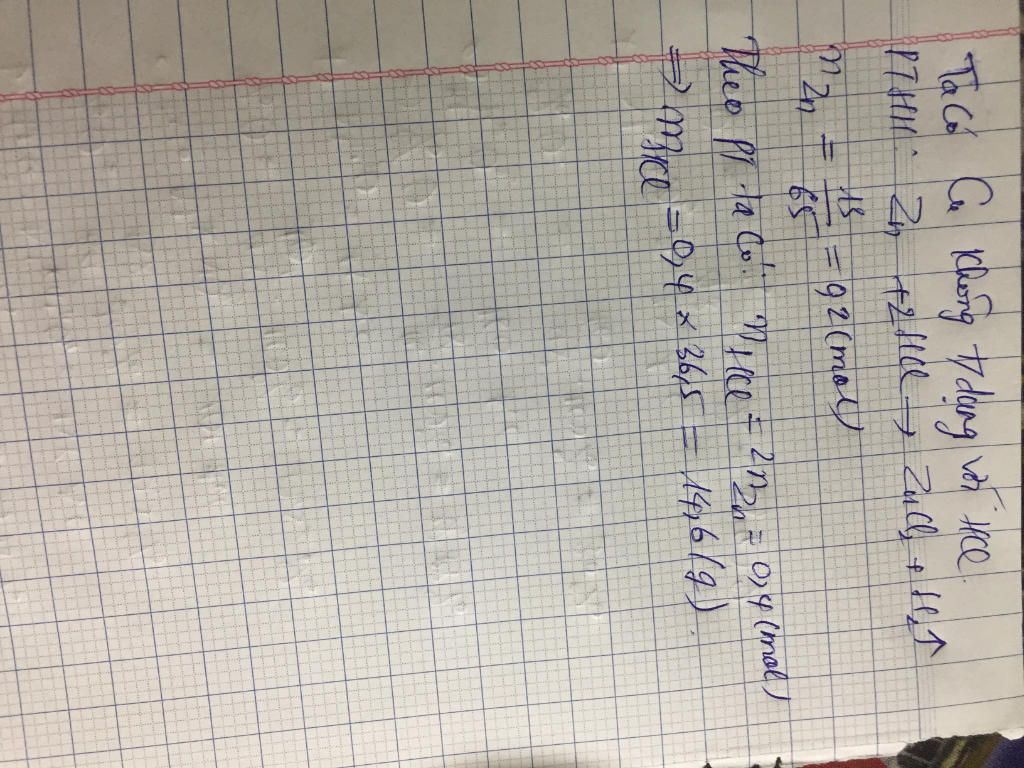 Ta có Cu không t/ dụng với HCl.
PTHH: Zn + 2HCl → ZnCl₂ + H₂↑
n Zn = 13/65 = 0,2 (mol)
Theo pt ta có: n HCl = 2n Zn = 0,4 (mol)
⇒ m HCl = 0,4 × 36,5 = 14,6 (g).